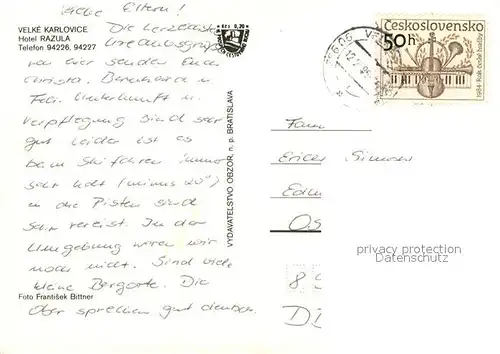 Liebe Eltern!
VELKÉ KARLOVICE
Hotel RAZULA
Telefon 94226, 94227
Die herzlichsten
Urlaubsgrüße
von hier senden Euch
Christa, Bernhard u.
Felix. Unterkunft u.
Verpflegung sind sehr
gut leider ist es
beim Skifahren immer
sehr kalt (minus 20°)
u. die Pisten sind
sehr vereist. In der
Umgebung waren wir
noch nicht. Sind viele
kleine Bergorte. Die
Ober sprechen gut deutsch.
Foto František Bittner
Kčs 0,70
VYDAVATEĽSTVO OBZOR, n. p. BRATISLAVA
Československo
50h
1984 - Rok české hudby
Fam
Simon
Os
privacy protection
Datenschutz
8
D